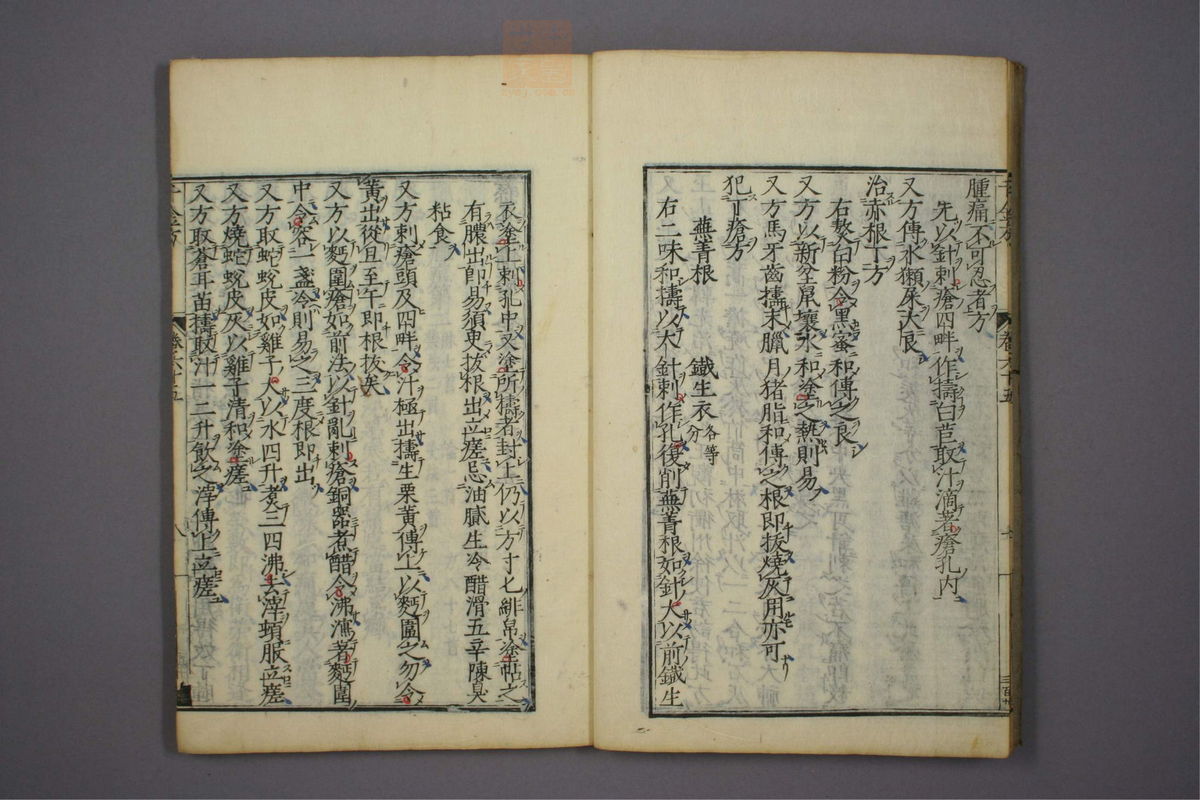 腫痛不可忍者方
先以針刺瘡四畔作擣白苣取汁滴著瘡孔內
又方傅水獺屎大良
治赤根丁方
右熬白粉令黑蜜和傅之良
又方以新坌鼠壤水和塗之熱則易
又方馬牙齒擣末臘月猪脂和傅之根即拔燒灰用亦可
犯丁瘡方
蕪菁根 鐵生衣各等分
右二味和擣以大針刺作孔復削蕪菁根如針大以前鐵生
衣塗上刺孔中又塗所擣者封上仍以方寸匕緋帛塗帖之
有膿出即易須臾拔根出立瘥忌油膩生冷醋滑五辛陳臭
粘食
又方刺瘡頭及四畔令汁極出擣生栗黃傅上以麪圍之勿令
黃出從旦至午即根拔矣
又方以麪圍瘡如前法以針亂刺瘡銅器煮醋令沸瀉著麪圍
中令容一盞冷則易之三度根即出
又方取蛇蛻皮如雞子大以水四升煮三四沸去滓頓服立瘥
又方燒蛇蛻皮灰以雞子清和塗瘥
又方取蒼耳苗擣取汁一二升飲之滓傅上立瘥